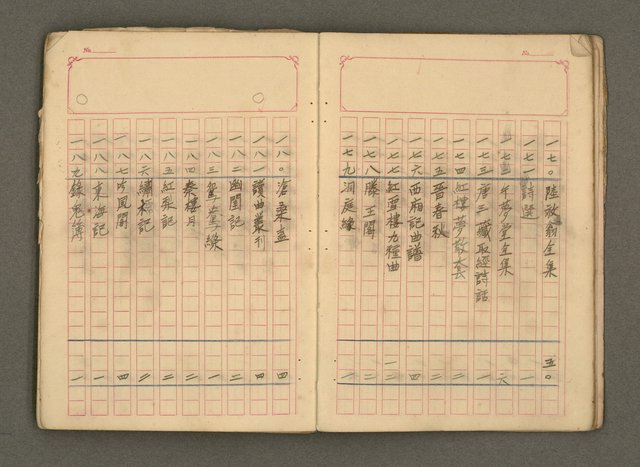 No.
一七〇 陸放翁全集 五〇
一七一 詩選 一
一七二 午夢堂全集 六
一七三 唐三藏取經詩話 一
一七四 紅樓夢散套 二
一七五 晉春秋 二
一七六 西廂記曲譜 二
一七七 紅雪樓九種曲 一二
一七八 滕王閣 二
一七九 洞庭緣 一
No.
一八〇 滄桑盦 四
一八一 讀曲叢刊 四
一八二 幽閨記 二
一八三 鴛鴦緣 一
一八四 秦樓月 二
一八五 紅梨記 二
一八六 繡襦記 二
一八七 吟風閣 四
一八八 東海記 一
一八九 錄鬼簿 一